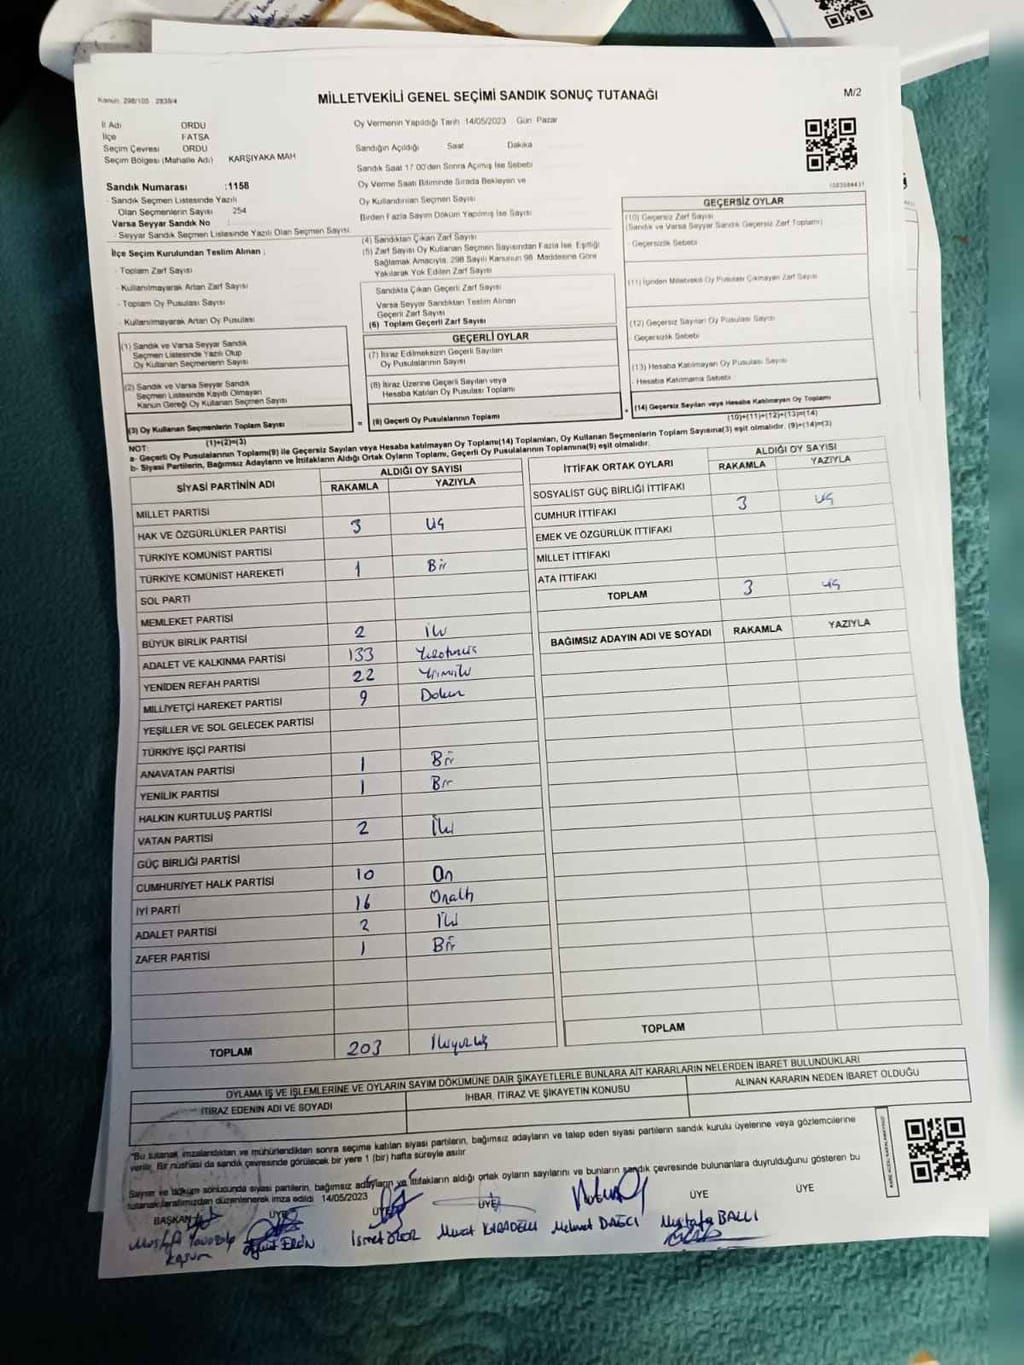 Kanun: 298/105 - 2839/4
MİLLETVEKİLİ GENEL SEÇİMİ SANDIK SONUÇ TUTANAĞI
M/2
İl Adı ORDU
İlçe FATSA
Seçim Çevresi ORDU
Seçim Bölgesi (Mahalle Adı) KARŞIYAKA MAH
Oy Vermenin Yapıldığı Tarih :14/05/2023 Gün Pazar
Sandığın Açıldığı Saat Dakika
Sandık Saat 17.00'den Sonra Açımış İse Sebebi
Oy Verme Saati Bitiminde Sırada Bekleyen ve
Oy Kullandırılan Seçmen Sayısı
Birden Fazla Sayım Döküm Yapılmış İse Sayısı
Sandık Numarası :1158
Sandık Seçmen Listesinde Yazılı
Olan Seçmenlerin Sayısı 254
Varsa Seyyar Sandık No
Seyyar Sandık Seçmen Listesinde Yazılı Olan Seçmen Sayısı
İlçe Seçim Kurulundan Teslim Alınan ;
- Toplam Zarf Sayısı
- Kullanılmayarak Artan Zarf Sayısı
- Toplam Oy Pusulası Sayısı
- Kullanılmayarak Artan Oy Pusulası
(1) Sandık ve Varsa Seyyar Sandık
Seçmen Listesinde Yazılı Olup
Oy Kullanan Seçmenlerin Sayısı
(2) Sandık ve Varsa Seyyar Sandık
Seçmen Listesinde Kayıtlı Olmayan
Kanun Gereği Oy Kullanan Seçmen Sayısı
(3) Oy Kullanan Seçmenlerin Toplam Sayısı
(1)+(2)=(3)
(4) Sandıktan Çıkan Zarf Sayısı
(5) Zarf Sayısı Oy Kullanan Seçmen Sayısından Fazla İse, Eşitliği
Sağlamak Amacıyla, 298 Sayılı Kanunun 98. Maddesine Göre
Yakılarak Yok Edilen Zarf Sayısı
Sandıkta Çıkan Geçerli Zarf Sayısı
Varsa Seyyar Sandıktan Teslim Alınan
Geçerli Zarf Sayısı
(6) Toplam Geçerli Zarf Sayısı
GEÇERLİ OYLAR
(7) İtiraz Edilmeksizin Geçerli Sayılan
Oy Pusulalarının Sayısı
(8) İtiraz Üzerine Geçerli Sayılan veya
Hesaba Katılan Oy Pusulası Toplamı
= (9) Geçerli Oy Pusulalarının Toplamı
GEÇERSİZ OYLAR
(10) Geçersiz Zarf Sayısı
(Sandık ve Varsa Seyyar Sandık Geçersiz Zarf Toplamı)
- Geçersizlik Sebebi
(11) İçinden Milletvekili Oy Pusulası Çıkmayan Zarf Sayısı
(12) Geçersiz Sayılan Oy Pusulası Sayısı
- Geçersizlik Sebebi
(13) Hesaba Katılmayan Oy Pusulası Sayısı
- Hesaba Katılmama Sebebi
+ (14) Geçersiz Sayılan veya Hesaba Katılmayan Oy Toplamı
(10)+(11)+(12)+(13)=(14)
NOT:
a- Geçerli Oy Pusulalarının Toplamı(9) ile Geçersiz Sayılan veya Hesaba katılmayan Oy Toplamı(14) Toplamları, Oy Kullanan Seçmenlerin Toplam Sayısına(3) eşit olmalıdır. (9)+(14)=(3)
b- Siyasi Partilerin, Bağımsız Adayların ve İttifakların Aldığı Ortak Oyların Toplamı, Geçerli Oy Pusulalarının Toplamına(9) eşit olmalıdır.
SİYASİ PARTİNİN ADI ALDIĞI OY SAYISI
RAKAMLA YAZIYLA
MİLLET PARTİSİ
HAK VE ÖZGÜRLÜKLER PARTİSİ 3 Uç
TÜRKİYE KOMÜNİST PARTİSİ
TÜRKİYE KOMÜNİST HAREKETİ 1 Bir
SOL PARTİ
MEMLEKET PARTİSİ
BÜYÜK BİRLİK PARTİSİ 2 İki
ADALET VE KALKINMA PARTİSİ 133
YENİDEN REFAH PARTİSİ 22 Yirmiiki
MİLLİYETÇİ HAREKET PARTİSİ 9 Dokuz
YEŞİLLER VE SOL GELECEK PARTİSİ
TÜRKİYE İŞÇİ PARTİSİ
ANAVATAN PARTİSİ 1 Bir
YENİLİK PARTİSİ 1 Bir
HALKIN KURTULUŞ PARTİSİ
VATAN PARTİSİ 2 İki
GÜÇ BİRLİĞİ PARTİSİ
CUMHURİYET HALK PARTİSİ 10 On
İYİ PARTİ 16 Onaltı
ADALET PARTİSİ 2 İki
ZAFER PARTİSİ 1 Bir
TOPLAM 203 İkiyüzüç
İTTİFAK ORTAK OYLARI ALDIĞI OY SAYISI
RAKAMLA YAZIYLA
SOSYALİST GÜÇ BİRLİĞİ İTTİFAKI
CUMHUR İTTİFAKI 3 Uç
EMEK VE ÖZGÜRLÜK İTTİFAKI
MİLLET İTTİFAKI
ATA İTTİFAKI
TOPLAM 3 Uç
BAĞIMSIZ ADAYIN ADI VE SOYADI RAKAMLA YAZIYLA
TOPLAM
OYLAMA İŞ VE İŞLEMLERİNE VE OYLARIN SAYIM DÖKÜMÜNE DAİR ŞİKAYETLERLE BUNLARA AİT KARARLARIN NELERDEN İBARET BULUNDUKLARI
İTİRAZ EDENİN ADI VE SOYADI İHBAR, İTİRAZ VE ŞİKAYETİN KONUSU ALINAN KARARIN NEDEN İBARET OLDUĞU
"Bu tutanak imzalandıktan ve mühürlendikten sonra seçime katılan siyasi partilerin, bağımsız adayların ve talep eden siyasi partilerin sandık kurulu üyelerine veya gözlemcilerine
verilir. Bir nüshası da sandık çevresinde görülecek bir yere 1 (bir) hafta süreyle asılır
Sayım ve döküm sonucunda siyasi partilerin, bağımsız adayların ve ittifakların aldığı ortak oyların sayılarını ve bunların sandık çevresinde bulunanlara duyrulduğunu gösteren bu
tutanak tarafımızdan düzenlenerek imza edildi. 14/05/2023
BAŞKAN ÜYE ÜYE ÜYE ÜYE ÜYE
Mustafa İsmet ÖZER Murat KARADELİ Mehmet DAĞCI Mustafa BALLI